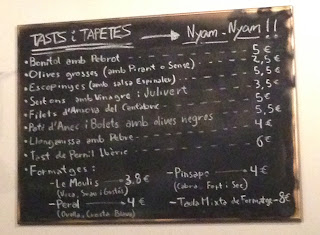 TASTS i TAPETES → Nyam-Nyam!!
• Bonítol amb Pebrot 5 €
• Olives grosses (amb Pinyol o Sense) 2,5 €
• Escopinyes (amb salsa Espinaler) 5,5 €
• Seitons amb Vinagre i Julivert 3,5 €
• Filets d'Anxova del Cantàbric 5 €
• Paté d'Ànec i Bolets amb olives negres 5,5 €
• Llonganissa amb Pebre 4 €
• Tast de Pernil Ibèric 6 €
• Formatges:
- Le Moulis → 3,8 €
(Vaca, Suau i Gustós)
- Peral → 4 €
(Ovella, Crosta Blava)
- Pinsapo → 4 €
(Cabra, Fort i Sec)
- Taula Mixta de Formatge - 8 €